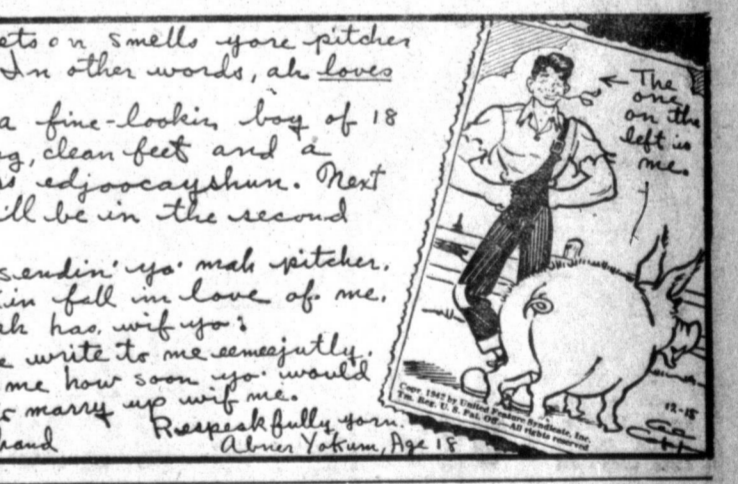 ets on smells yore pitcher
In other words, ah loves
a fine-lookin boy of 18
g, clean feet and a
s edjoocayshun. Next
ill be in the second
sendin' yo' mah pitcher.
in fall in love of me,
ah has, wif yo'.
e write to me eemejutly.
me how soon yo' would
marry up wif me.
Respeskfully yorn.
hand
Abner Yokum, Age 18
The
one
on the
left is
me.
Copr. 1942 by United Feature Syndicate, Inc.
Tm. Reg. U. S. Pat. Off.—All rights reserved
12-18